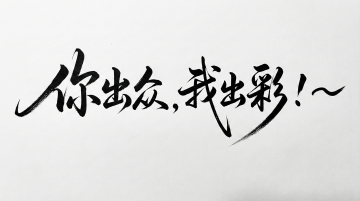 你出众,我出彩!~